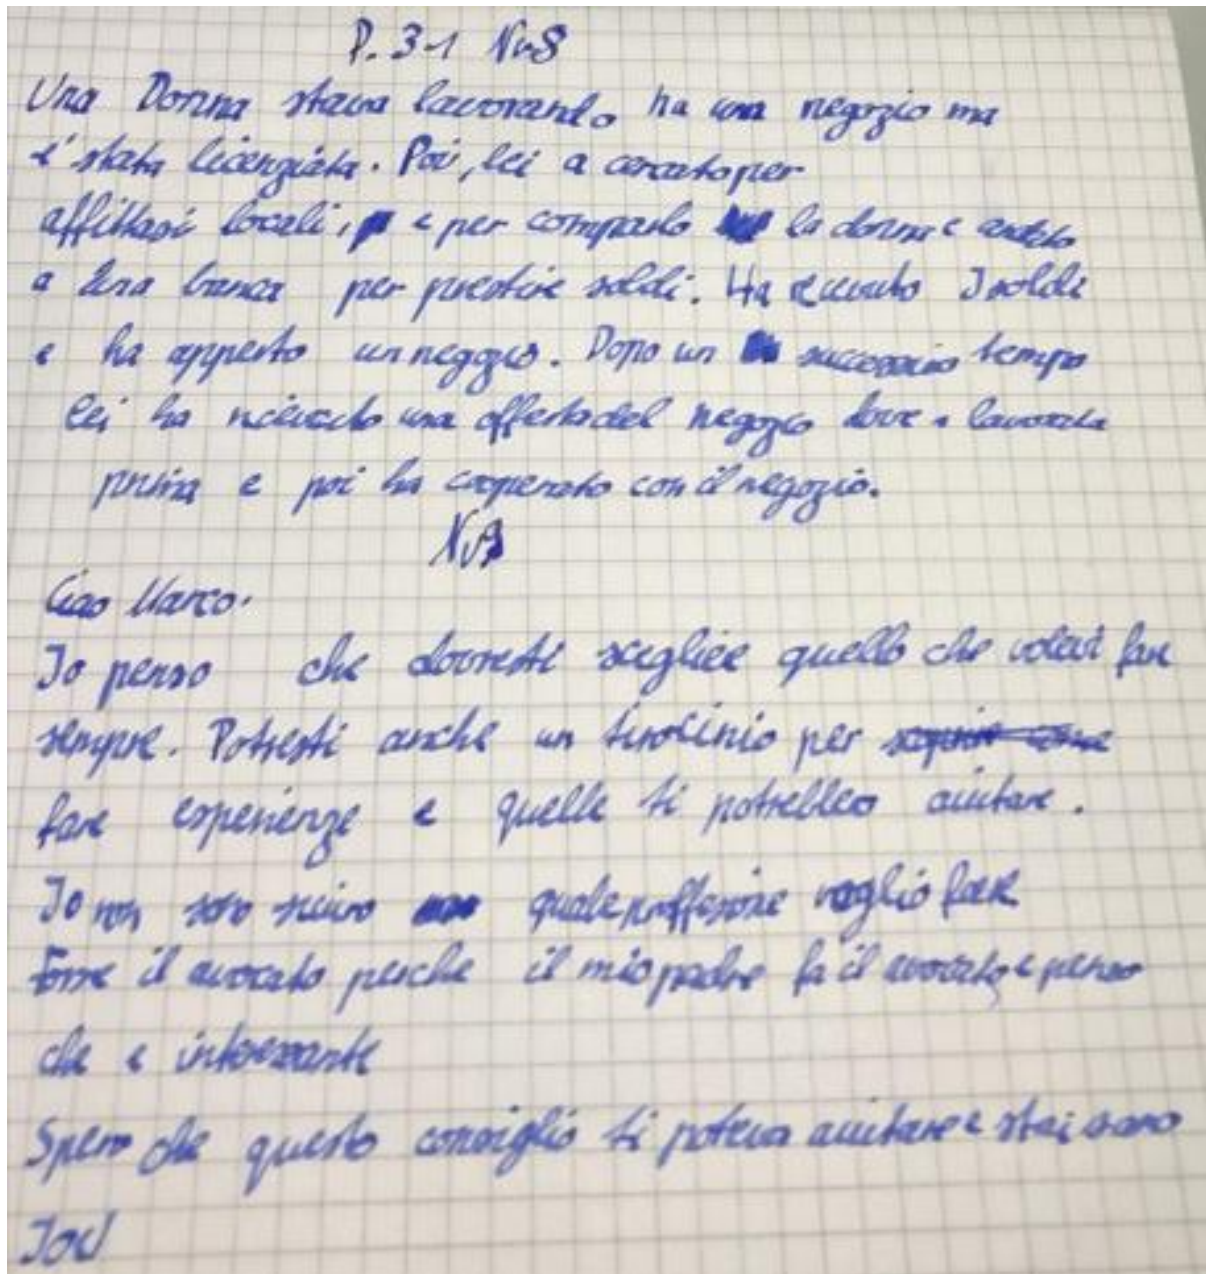 P. 31 Nr8
Una Donna stava lavorando ha una negozio ma
e' stata licenziata. Poi, lei a cercato per
affittasi locali, e per comprarlo la donna e andato
a una banca per prestire soldi. Ha ricevuto I soldi
e ha apperto un negozio. Dopo un tempo
lei ha ricievuto una offerta del negozio dove a lavorata
prima e poi ha cooperato con il negozio.
Nr9
Ciao Marco.
Io penso che dovresti scegliere quello che volevi fare
sempre. Potresti anche un tirocinio per
fare esperienze e quelle ti potrebbeo aiutare.
Io non sono sicuro quale proffesione voglio fare
Forse il avocato perche il mio padre fa il avocato e penso
che e interessante
Spero che questo consiglio ti poteva aiutare e stai sano